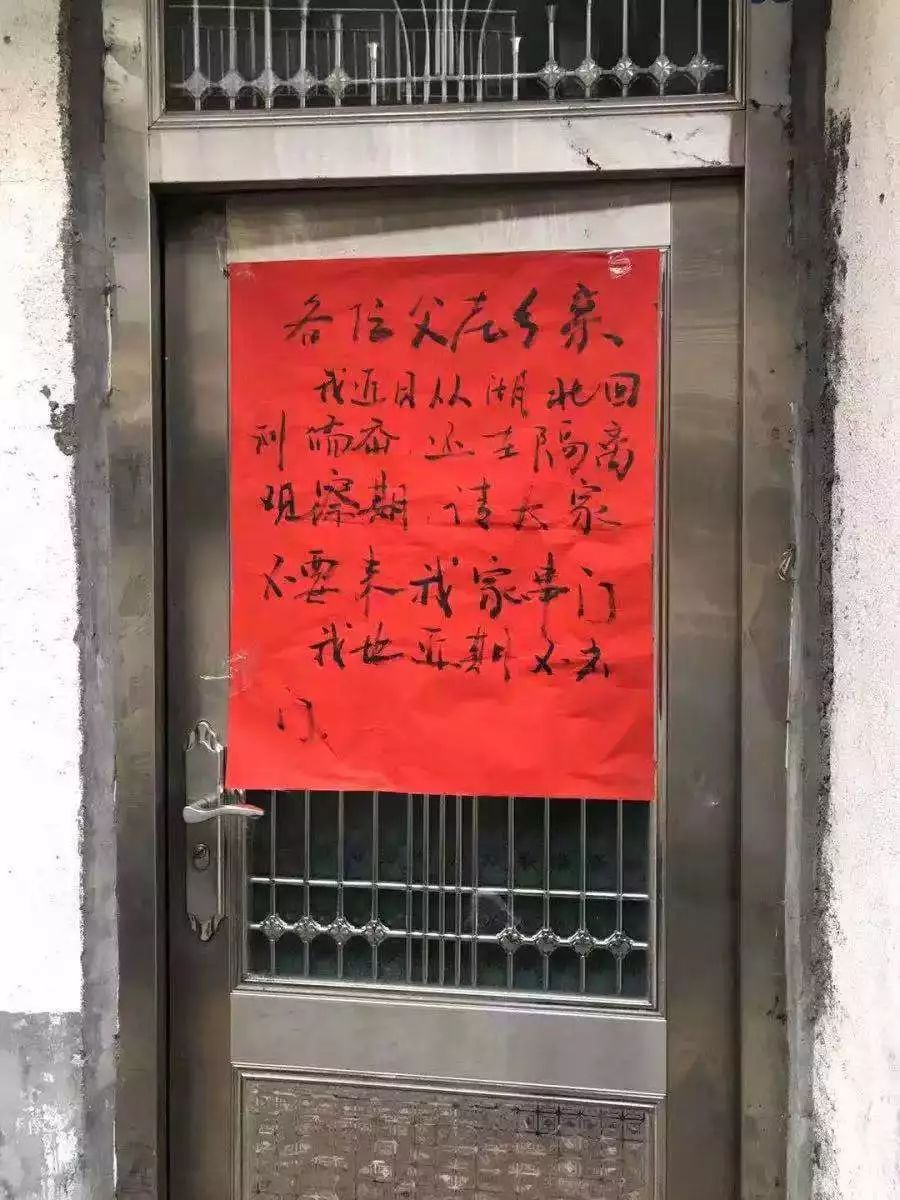 各位父老乡亲
我近日从湖北回
到 还在隔离
观察期,请大家
不要来我家串门
我也近期不出
门